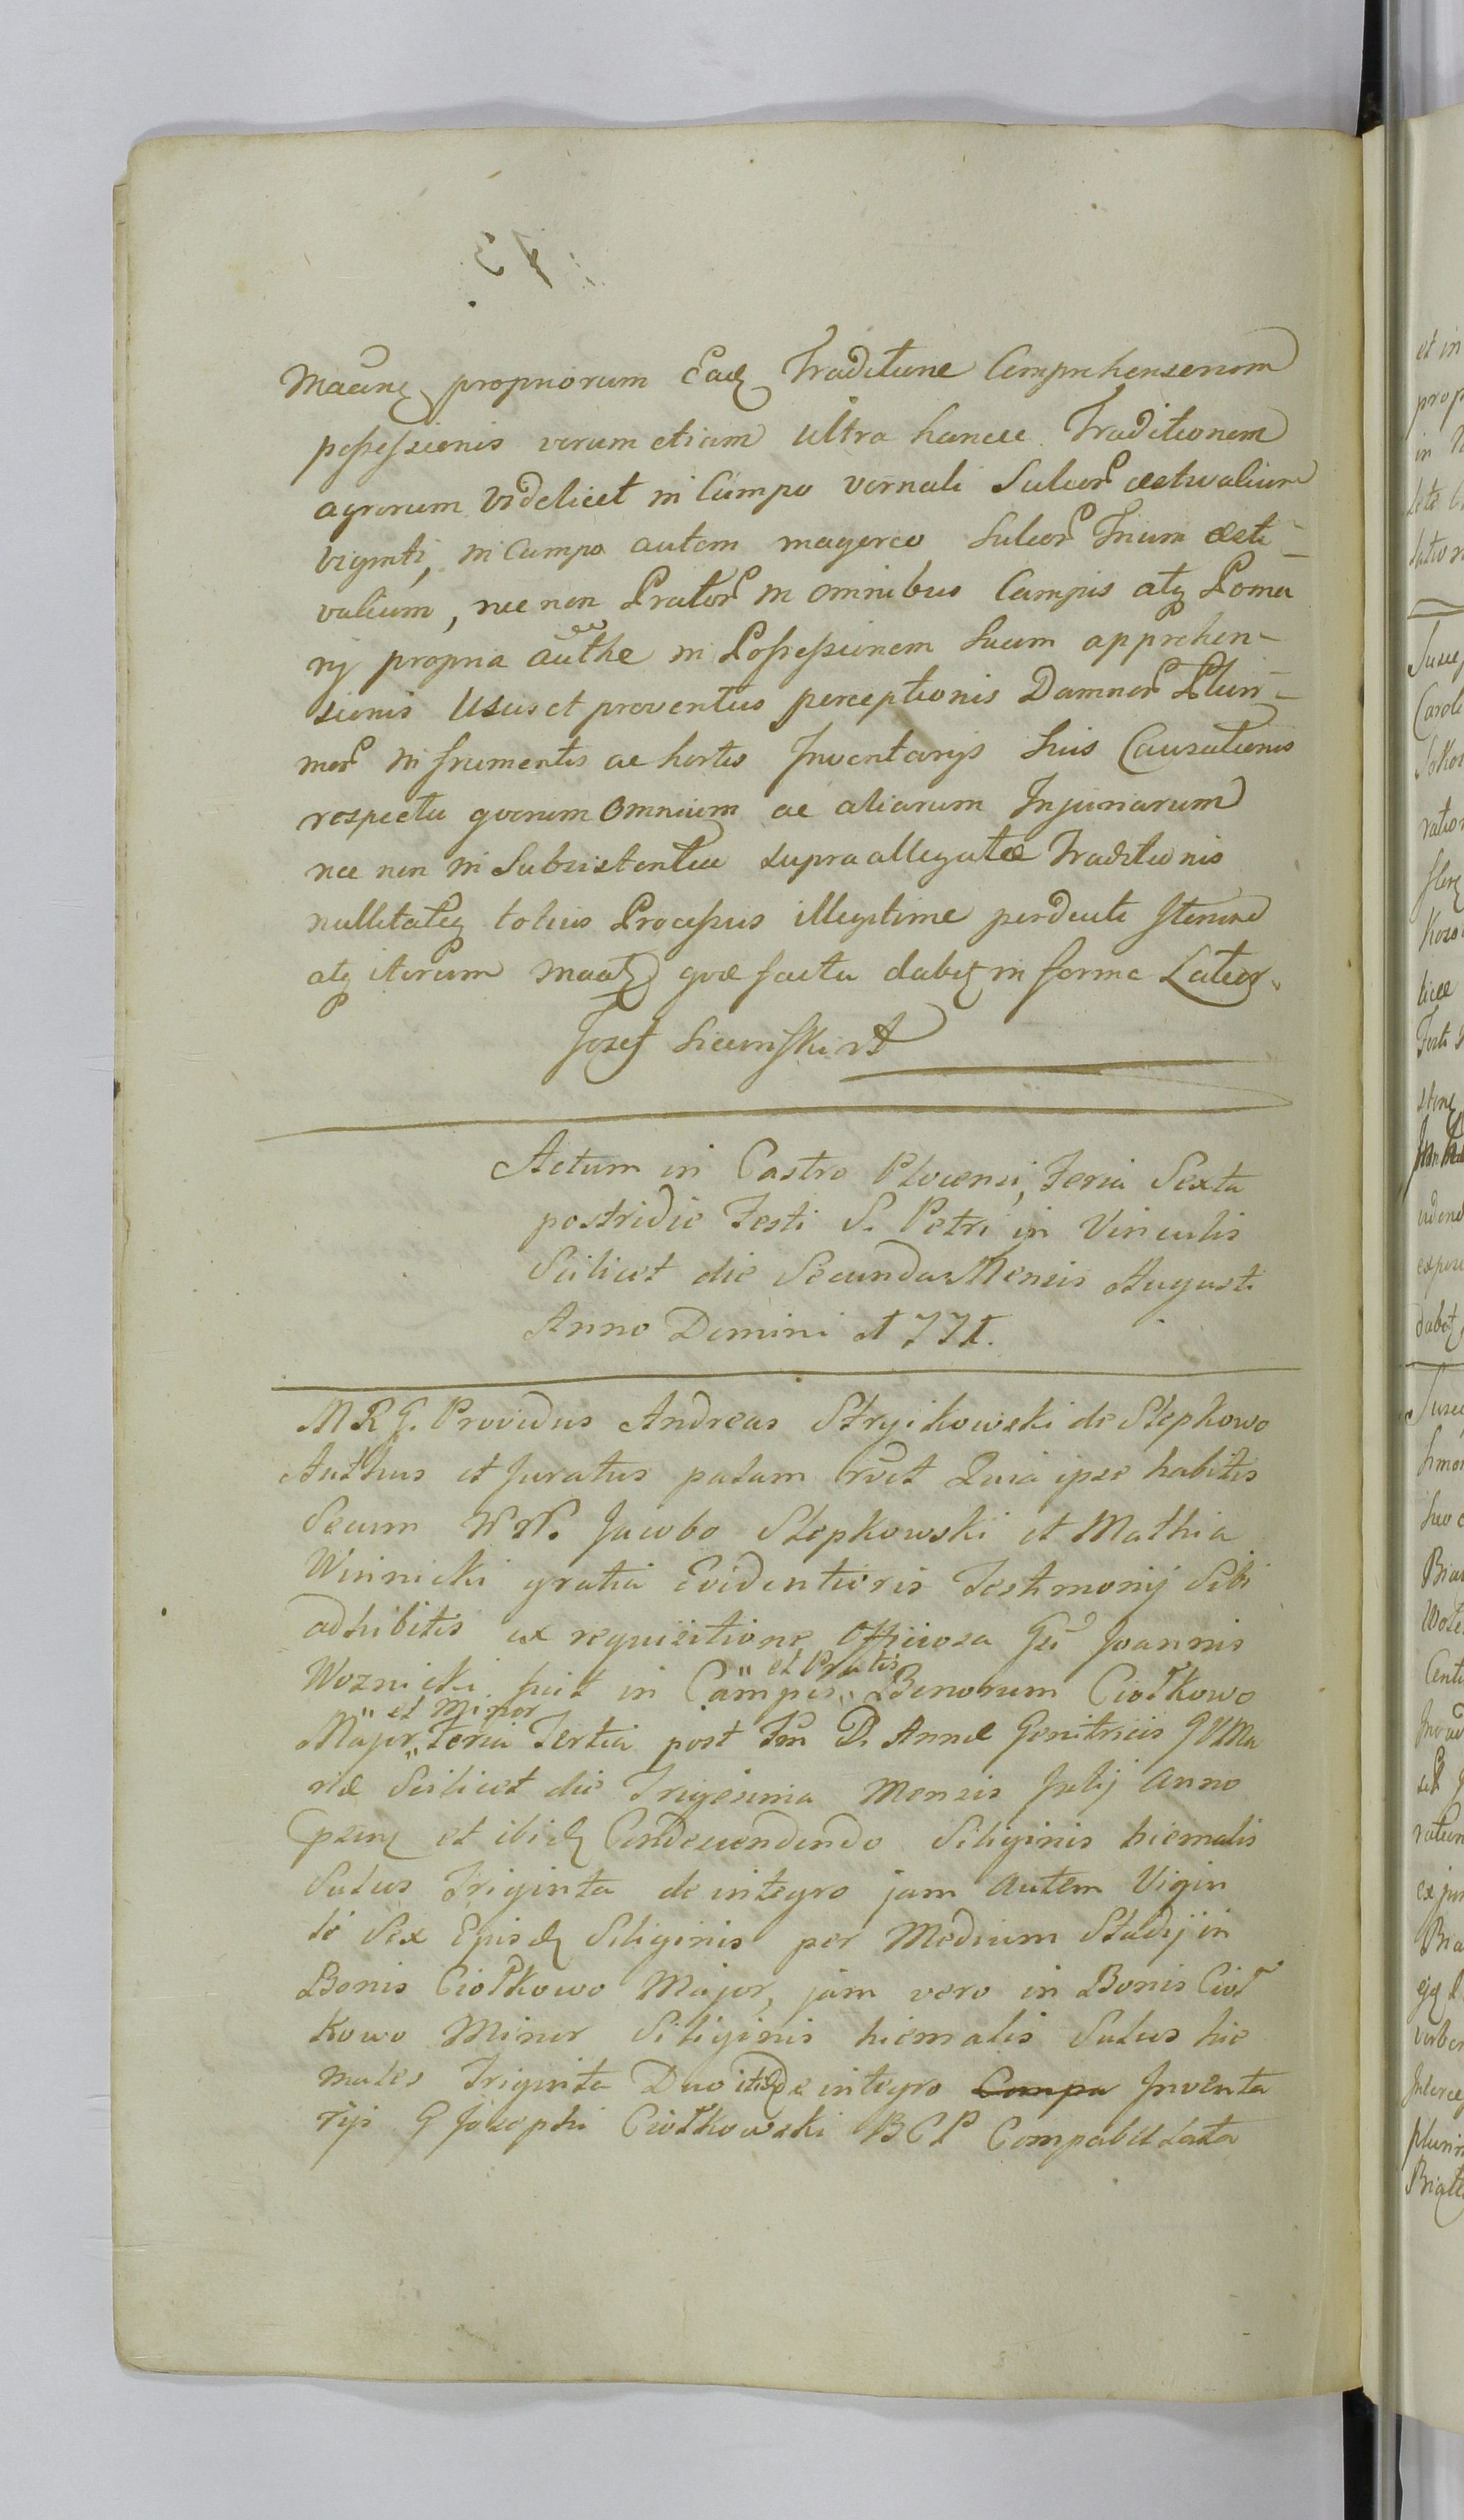 propriorum Eadq Traditione Comprehensorum
possessionis verum etiam ultra hancce Traditionem
agrorum videlicet in Campo vernali Sulcor aestivalium
viginti, in Campo autem magerco Sulcor Trium aesti-
valium, nec non Prator in omnibus Campis atq Poma
rij propria authe in Possessionem Suam apprehen-
sionis Usus et proventus perceptionis Damnor Pluri-
mor in frumentis ac hortis Inventarijs Suis Causationis
respectu quorum Omnium ac aliarum Injuriarum
nec non in Subsistentiae supra allegatae Traditionis
nullitatisq totius Processus illegitime perducti
atq iterum quae facta dabit in forma Latior.
Jozef
Actum in Castro Plocensi, Feria Sexta
postridie Festi S. Petri in Vinculis
Scilicet die Secunda Mensis Augusti
Anno Domini 1771.
MRG. Providus Andreas Stryikowski de Slepkowo
Authus et Juratus palam rvit Quia ipse habitis
Secum NN. Jacobo Slepkowski et Mathia
Winnicki gratia Evidentioris Testimonij Sibi
adhibitis ex requisitione Officiosa Gsi Joannis
Woznicki fuit in Campis et Pratis Bonorum Ciołkowo
Major et Minor Feria Tertia post Fm D. Annae Genitricis GVMa
riae Scilicet die Trigesima Mensis Julij Anno
psenq et ibidq Condescendendo Siliginis hiemalis
Sulcus Triginta de integro jam autem Vigin
ti Sex Episdq Siliginis per Medium Stadij in
Bonis Ciołkowo Major, jam vero in Bonis Cioł
kowo Minor Siliginis hiemalis Sulcus hie
males Triginta Duo itidq de integro Campo Inventa
rijs G Josephi Ciołkowski BCP